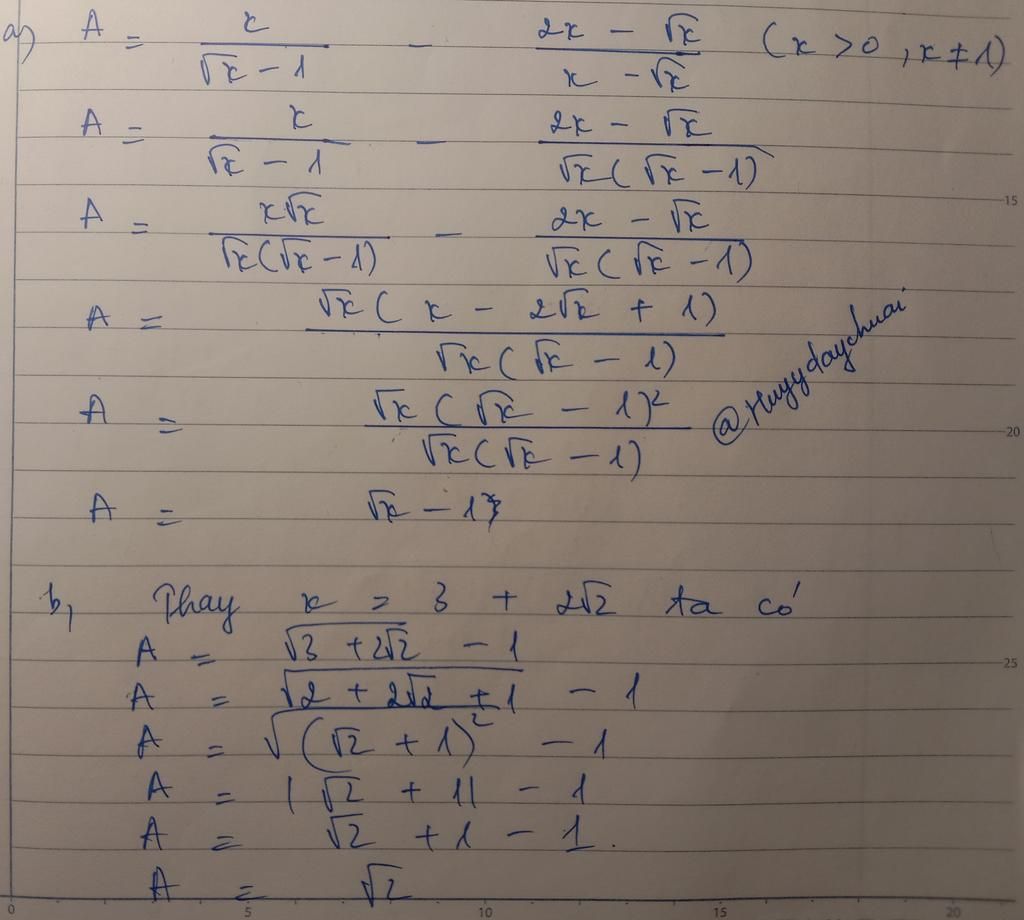 a) A = x / (√x − 1) − (2x − √x) / (x − √x) (x > 0, x ≠ 1)
A = x / (√x − 1) − (2x − √x) / (√x(√x − 1))
A = x√x / (√x(√x − 1)) − (2x − √x) / (√x(√x − 1))
A = √x(x − 2√x + 1) / (√x(√x − 1))
A = √x(√x − 1)² / (√x(√x − 1))
@Huyydaychuai
A = √x − 1
b, Thay x = 3 + 2√2 ta có
A = √(3 + 2√2) − 1
A = √(2 + 2√2 + 1) − 1
A = √((√2 + 1)²) − 1
A = |√2 + 1| − 1
A = √2 + 1 − 1.
A = √2
15
20
25
0 5 10 15 20